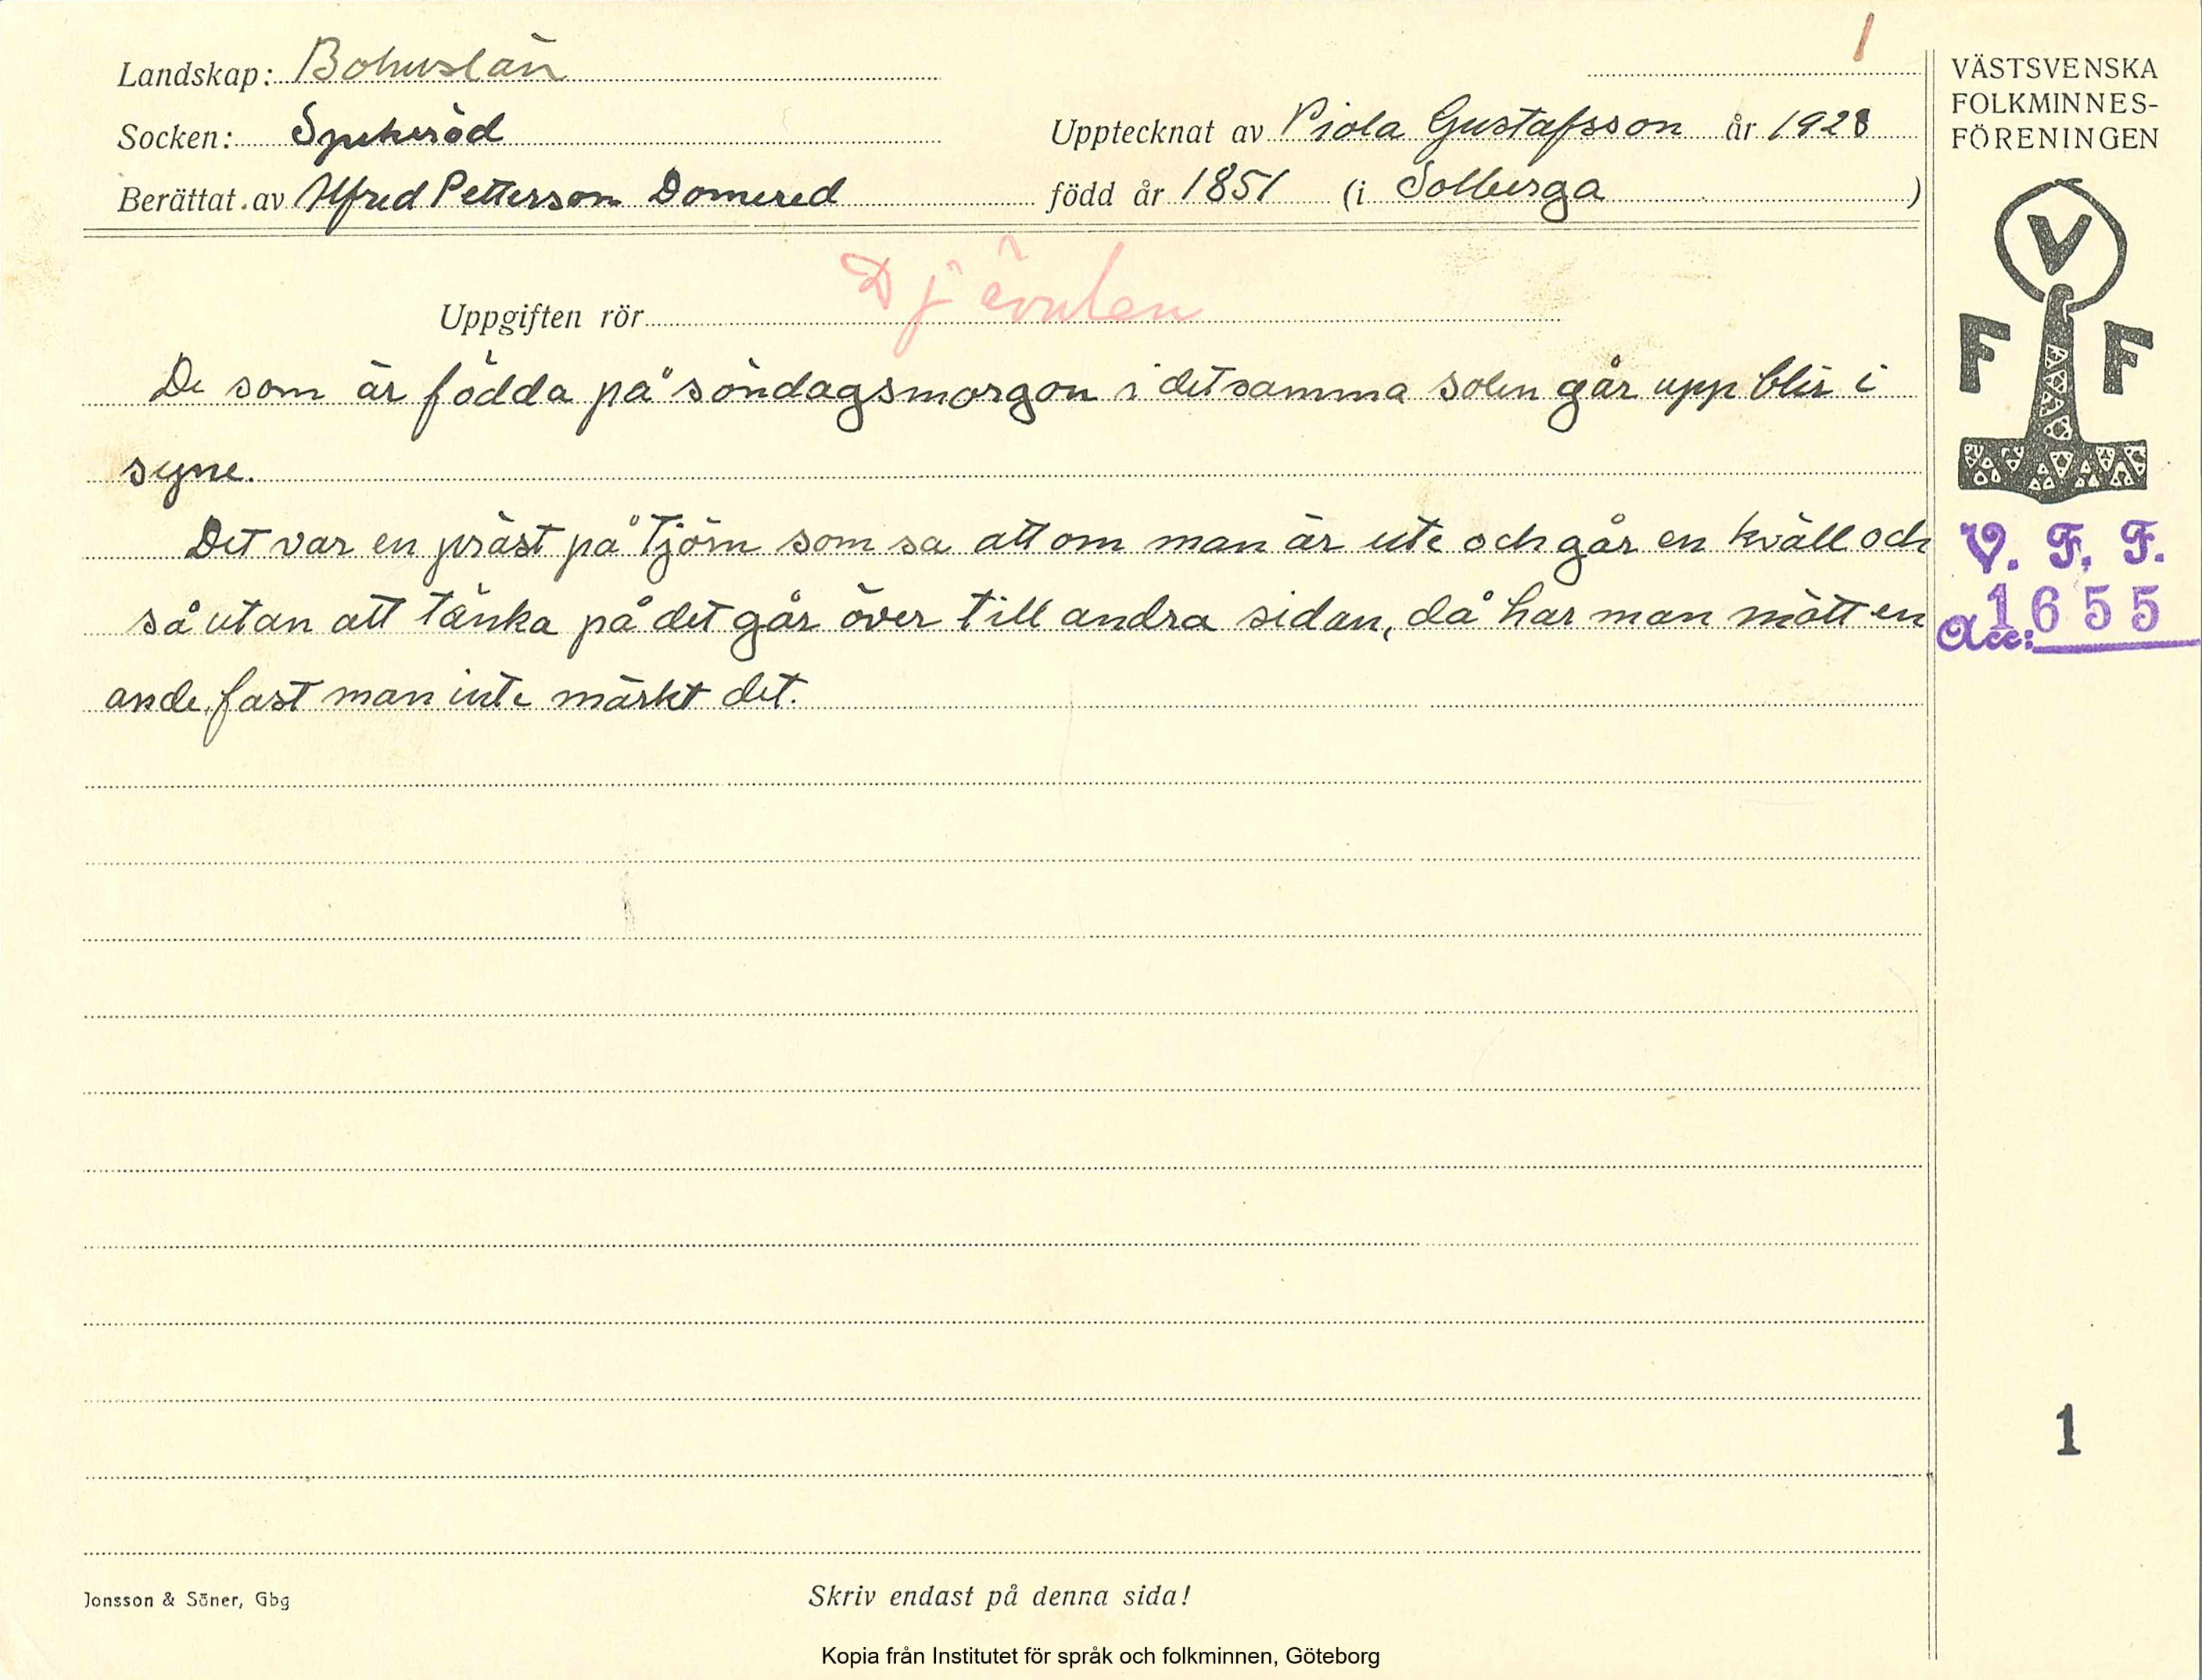 1
Landskap: Bohuslän
VÄSTSVENSKA
FOLKMINNES-
FÖRENINGEN
Socken: Spekeröd
Upptecknat av Viola Gustafsson år 1928
Berättat av Alfred Petterson Domered född år 1851 (i Solberga)
Uppgiften rör Djävulen
V
F F
De som är födda på söndagsmorgon i detsamma solen går upp blir i
syne.
Det var en präst på Tjörn som sa att om man är ute och går en kväll och
så utan att tänka på det går över till andra sidan, då har man mött en
ande, fast man inte märkt det.
V. F. F.
Acc: 1655
1
Jonsson & Söner, Gbg
Skriv endast på denna sida!
Kopia från Institutet för språk och folkminnen, Göteborg